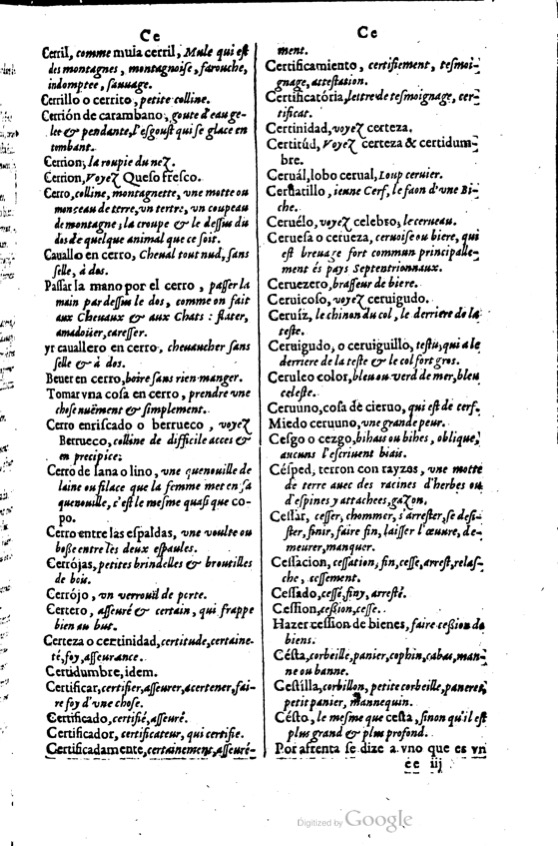 Ce
Cerril, comme muia cerril, Mule qui est
des montagnes, montagnoise, farouche,
indomptee, sauuage.
Cerrillo o cerrito, petite colline.
Cerrión de carambano, goute d'eau ge-
lee & pendante, l'esgoust qui se glace en
tombant.
Cerrion, la roupie du nez.
Cerrion, Voyez Queso fresco.
Cerro, colline, montagnette, vne motte ou
monceau de terre, vn tertre, vn coupeau
de montagne; la croupe & le dessus du
dos de quelque animal que ce soit.
Cauallo en cerro, Cheual tout nud, sans
selle, à dos.
Passar la mano por el cerro, passer la
main par dessus le dos, comme on fait
aux Cheuaux & aux Chats: flater,
amadoüer, caresser.
yr cauallero en cerro, cheuaucher sans
selle & à dos.
Beuer en cerro, boire sans rien manger.
Tomar vna cosa en cerro, prendre vne
chose nuëment & simplement.
Cerro enriscado o berrueco, voyez
Berrueco, colline de difficile acces &
en precipice;
Cerro de lana o lino, vne quenouille de
laine ou filace que la femme met en sa
quenouille, c'est le mesme quasi que co-
po.
Cerro entre las espaldas, vne voulte ou
bosse entre les deux espaules.
Cerrójas, petites brindelles & broutilles
de bois.
Cerrójo, vn verrouil de porte.
Certero, asseuré & certain, qui frappe
bien au but.
Certeza o certinidad, certitude, certaine-
té, foy, asseurance.
Certidumbre, idem.
Certificar, certifier, asseurer, acertener, fai-
re foy d'vne chose.
Certificado, certifié, asseuré.
Certificador, certificateur, qui certifie.
Certificadamente, certainement, asseuré-
Ce
ment.
Certificamiento, certifiement, tesmoi-
gnage, attestation.
Certificatória, lettre de tesmoignage, cer-
tificat.
Certinidad, voyez certeza.
Certitúd, Voyez certeza & certidum-
bre.
Ceruál, lobo cerual, Loup ceruier.
Ceruatillo, ieune Cerf, le faon d'vne Bi-
che.
Ceruélo, voyez celebro, le cerueau.
Ceruesa o cerueza, ceruoise ou biere, qui
est breuage fort commun principalle-
ment és pays Septentrionnaux.
Ceruezero, brasseur de biere.
Ceruicoso, voyez ceruigudo.
Ceruíz, le chinon du col, le derriere de la
teste.
Ceruigudo, o ceruiguillo, testu, qui a le
derriere de la teste & le col fort gros.
Ceruleo color, bleu ou verd de mer, bleu
celeste.
Ceruuno, cosa de cieruo, qui est de cerf.
Miedo ceruuno, vne grande peur.
Cesgo o cezgo, bihais ou bihes, oblique,
aucuns l'escriuent biais.
Césped, terron con rayzos, vne motte
de terre auec des racines d'herbes ou
d'espines y attachees, gazon.
Cessar, cesser, chommer, s'arrester, se desi-
ster, finir, faire fin, laisser l'œuure, de-
meurer, manquer.
Cessacion, cessation, fin, cesse, arrest, relas-
che, cessement.
Cessado, cessé, finy, arresté.
Cession, cession, cesse.
Hazer cession de bienes, faire cession de
biens.
Césta, corbeille, panier, cophin, cabas, man-
ne ou banne.
Cestilla, corbillon, petite corbeille, paneret,
petit panier, mannequin.
Césto, le mesme que cesta, sinon qu'il est
plus grand & plus profond.
Por afrenta se dize a vno que es vn
ee iij
Digitized by Google